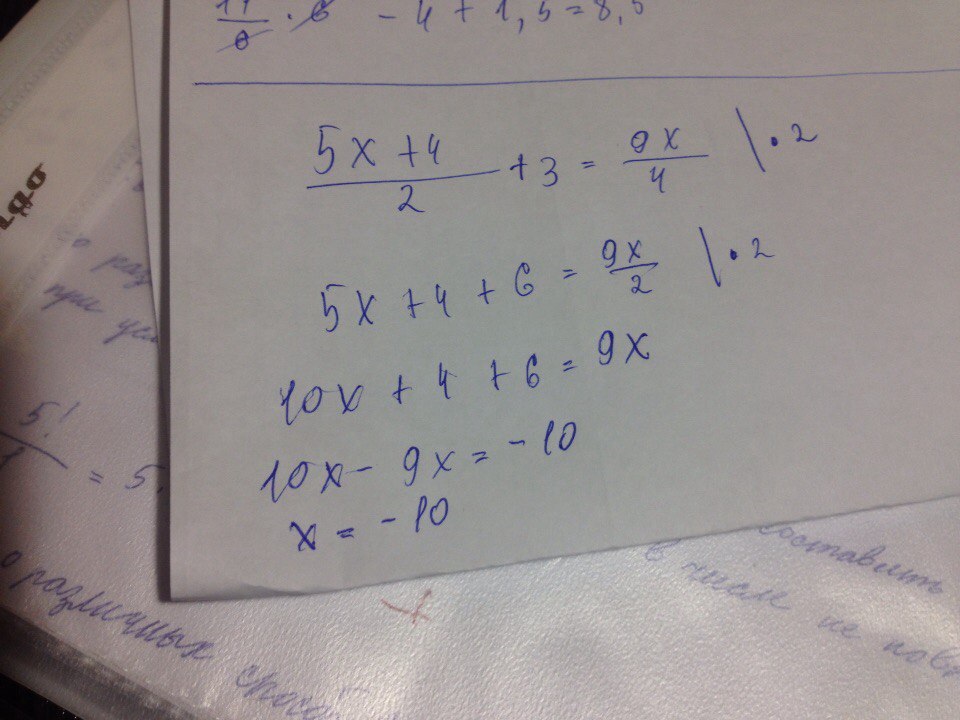 - 4 + 1,5 = 8,5
(5x + 4)/2 + 3 = 9x/4 \ · 2
5x + 4 + 6 = 9x/2 \ · 2
10x + 4 + 6 = 9x
10x - 9x = - 10
x = - 10
о раз
при усл
5!
= 5
о различных способ
составить
в числе не повт